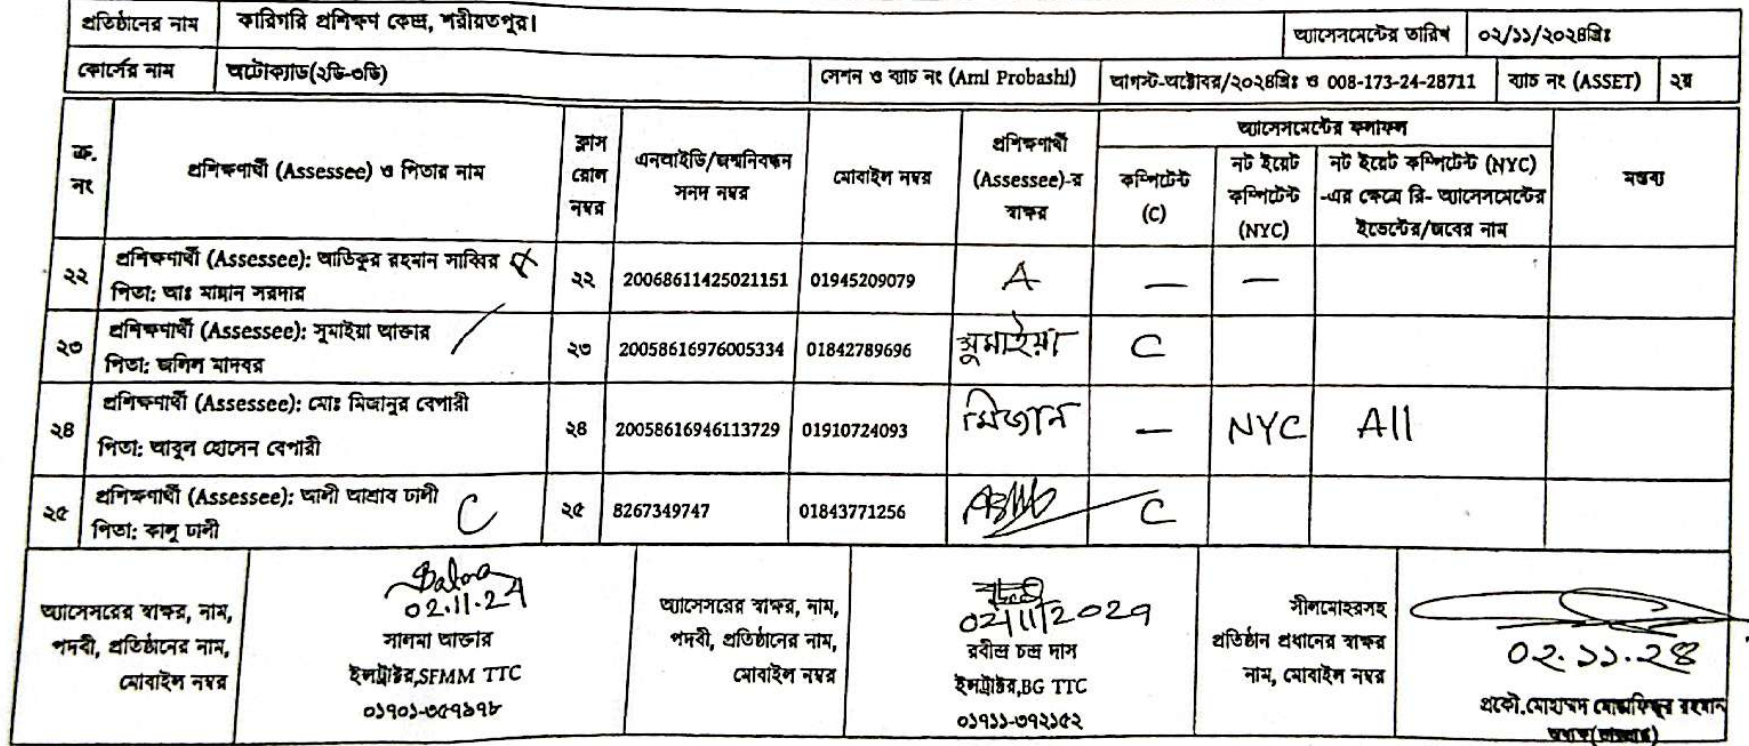 প্রতিষ্ঠানের নাম কারিগরি প্রশিক্ষণ কেন্দ্র, শরীয়তপুর। অ্যাসেসমেন্টের তারিখ ০২/১১/২০২৪খ্রিঃ
কোর্সের নাম অটোক্যাড(২ডি-৩ডি) সেশন ও ব্যাচ নং (Ami Probashi) আগস্ট-অক্টোবর/২০২৪খ্রিঃ ও 008-173-24-28711 ব্যাচ নং (ASSET) ২য়
ক্র. নং
প্রশিক্ষণার্থী (Assessee) ও পিতার নাম
ক্লাস রোল নম্বর
এনআইডি/জন্মনিবন্ধন সনদ নম্বর
মোবাইল নম্বর
প্রশিক্ষণার্থী (Assessee)-র স্বাক্ষর
অ্যাসেসমেন্টের ফলাফল
কম্পিটেন্ট (C)
নট ইয়েট কম্পিটেন্ট (NYC)
নট ইয়েট কম্পিটেন্ট (NYC) -এর ক্ষেত্রে রি- অ্যাসেসমেন্টের ইভেন্টের/জবের নাম
মন্তব্য
২২ প্রশিক্ষণার্থী (Assessee): আতিকুর রহমান সাব্বির ২২ 20068611425021151 01945209079 A — —
পিতা: আঃ মান্নান সরদার
২৩ প্রশিক্ষণার্থী (Assessee): সুমাইয়া আক্তার ২৩ 20058616976005334 01842789696 সুমাইয়া C
পিতা: জলিল মাদবর
২৪ প্রশিক্ষণার্থী (Assessee): মোঃ মিজানুর বেপারী ২৪ 20058616946113729 01910724093 মিজান — NYC All
পিতা: আবুল হোসেন বেপারী
২৫ প্রশিক্ষণার্থী (Assessee): আলী আশ্রাব ঢালী C ২৫ 8267349747 01843771256 C
পিতা: কালু ঢালী
অ্যাসেসরের স্বাক্ষর, নাম,
পদবী, প্রতিষ্ঠানের নাম,
মোবাইল নম্বর
Salma
02.11.24
সালমা আক্তার
ইন্সট্রাক্টর,SFMM TTC
০১৭০১-৩৫৭১৭৮
অ্যাসেসরের স্বাক্ষর, নাম,
পদবী, প্রতিষ্ঠানের নাম,
মোবাইল নম্বর
02/11/2024
রবীন্দ্র চন্দ্র দাস
ইন্সট্রাক্টর,BG TTC
০১৭১১-৩৭২১৫২
সীলমোহরসহ
প্রতিষ্ঠান প্রধানের স্বাক্ষর
নাম, মোবাইল নম্বর
০২.১১.২৪
প্রকৌ.মোহাম্মদ মোস্তাফিজুর রহমান
অধ্যক্ষ(ভারপ্রাপ্ত)